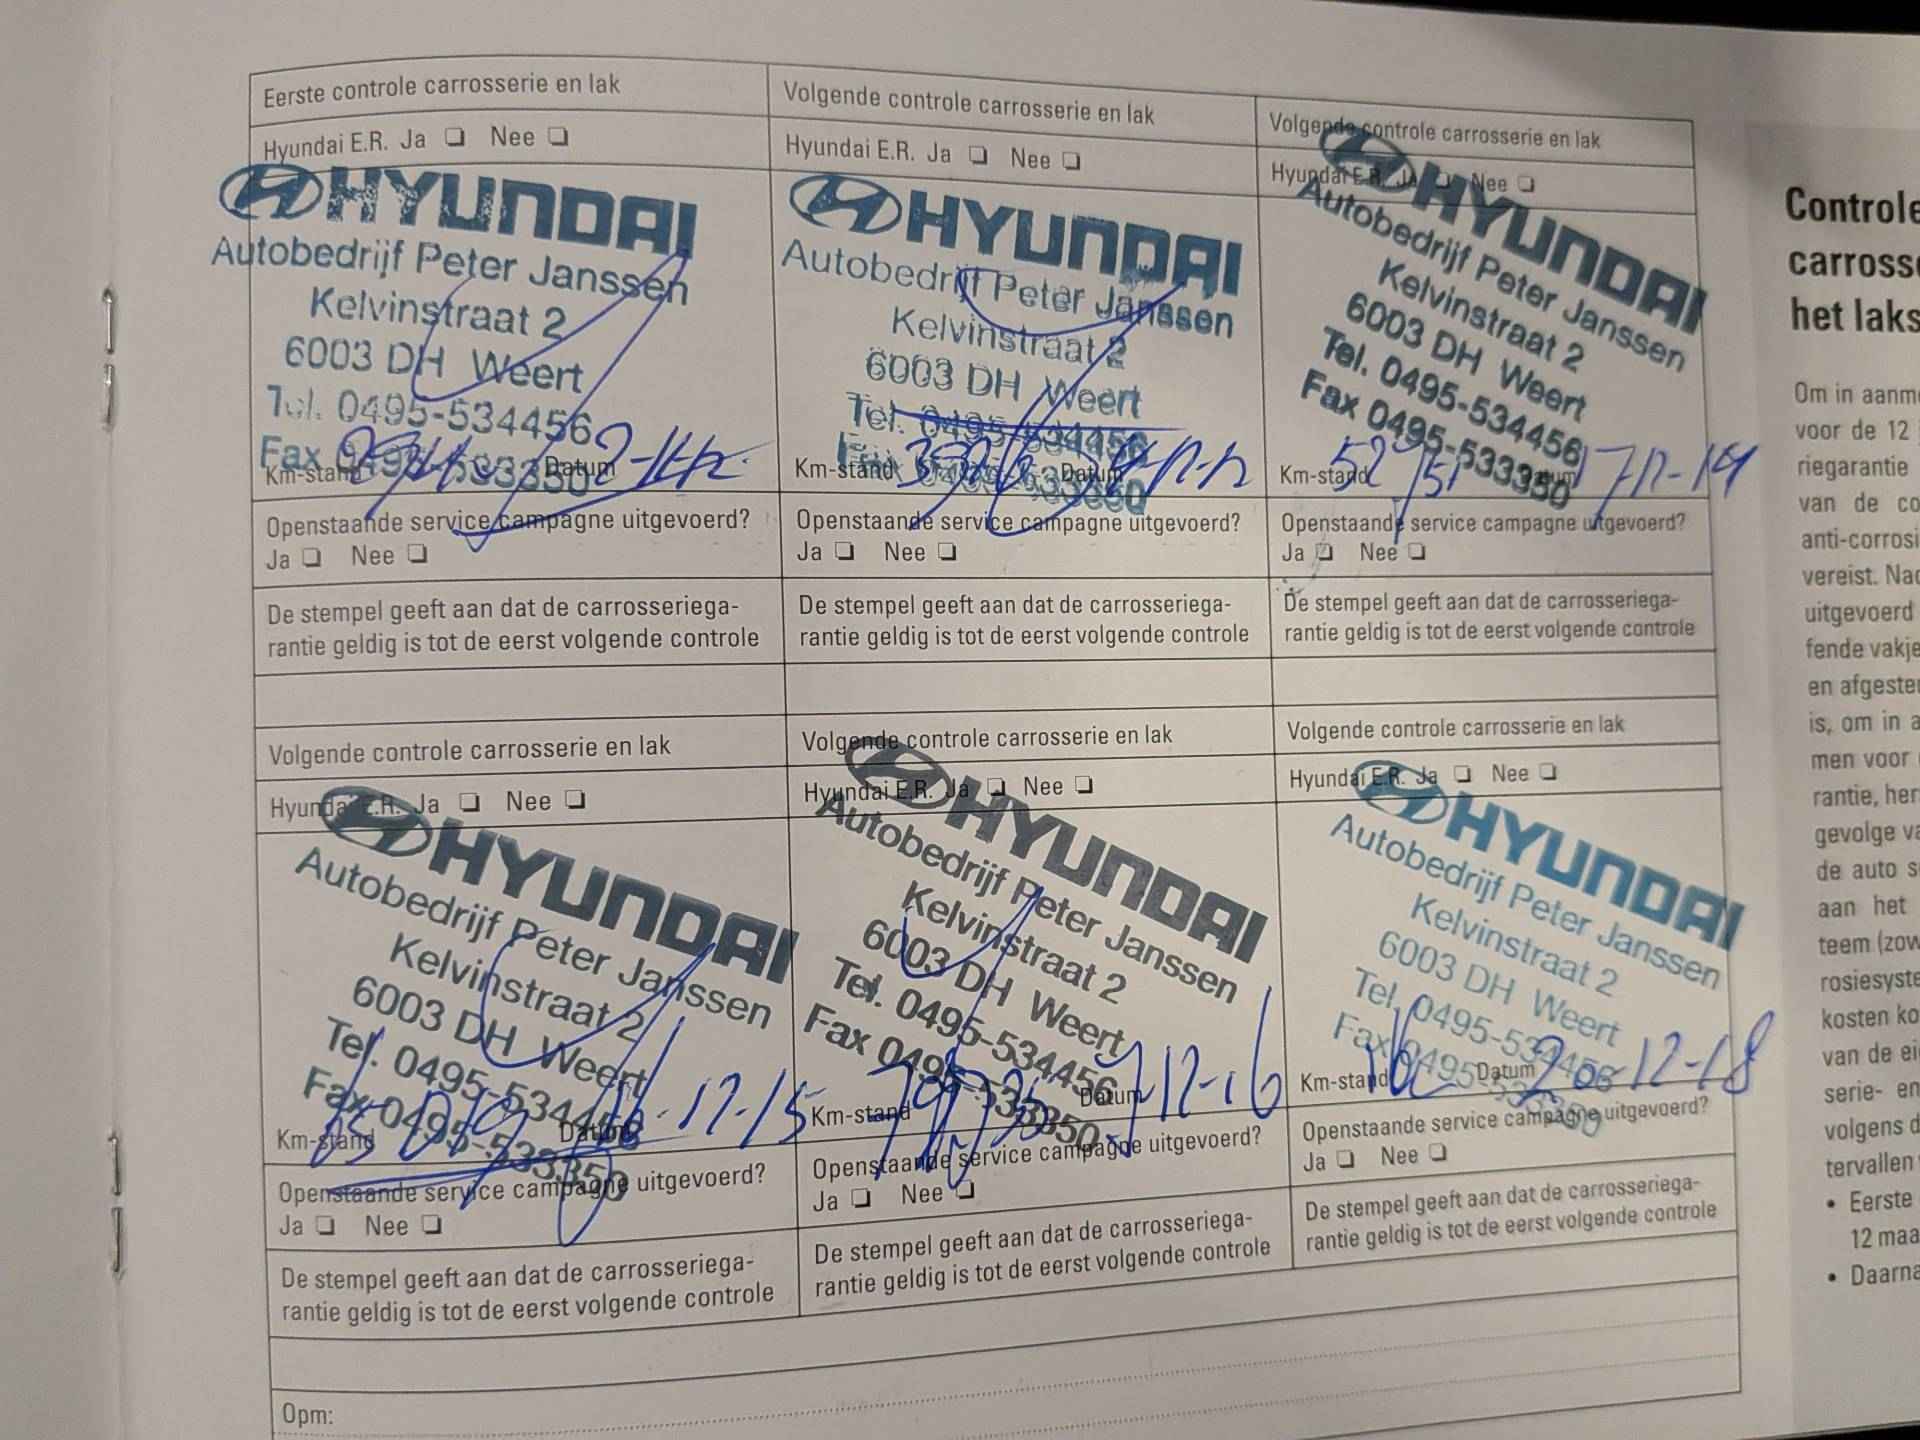 Eerste controle carrosserie en lak
Hyundai E.R. Ja Nee
HYUNDAI
Autobedrijf Peter Janssen
Kelvinstraat 2
6003 DH Weert
Tel. 0495-534456
Fax 0495-533350
Km-stand Datum
Openstaande service campagne uitgevoerd?
Ja Nee
De stempel geeft aan dat de carrosseriega-
rantie geldig is tot de eerst volgende controle
Volgende controle carrosserie en lak
Hyundai E.R. Ja Nee
HYUNDAI
Autobedrijf Peter Janssen
Kelvinstraat 2
6003 DH Weert
Tel. 0495-534456
Fax 0495-533350
Km-stand Datum
Openstaande service campagne uitgevoerd?
Ja Nee
De stempel geeft aan dat de carrosseriega-
rantie geldig is tot de eerst volgende controle
Volgende controle carrosserie en lak
Hyundai E.R. Ja Nee
HYUNDAI
Autobedrijf Peter Janssen
Kelvinstraat 2
6003 DH Weert
Tel. 0495-534456
Fax 0495-533350
Km-stand Datum 17-12-14
Openstaande service campagne uitgevoerd?
Ja Nee
De stempel geeft aan dat de carrosseriega-
rantie geldig is tot de eerst volgende controle
Volgende controle carrosserie en lak
Hyundai E.R. Ja Nee
HYUNDAI
Autobedrijf Peter Janssen
Kelvinstraat 2
6003 DH Weert
Tel. 0495-534456
Fax 0495-533350
Km-stand Datum
Openstaande service campagne uitgevoerd?
Ja Nee
De stempel geeft aan dat de carrosseriega-
rantie geldig is tot de eerst volgende controle
Volgende controle carrosserie en lak
Hyundai E.R. Ja Nee
HYUNDAI
Autobedrijf Peter Janssen
Kelvinstraat 2
6003 DH Weert
Tel. 0495-534456
Fax 0495-533350
Km-stand Datum
Openstaande service campagne uitgevoerd?
Ja Nee
De stempel geeft aan dat de carrosseriega-
rantie geldig is tot de eerst volgende controle
Volgende controle carrosserie en lak
Hyundai E.R. Ja Nee
HYUNDAI
Autobedrijf Peter Janssen
Kelvinstraat 2
6003 DH Weert
Tel. 0495-534456
Fax 0495-533350
Km-stand Datum 20-12-18
Openstaande service campagne uitgevoerd?
Ja Nee
De stempel geeft aan dat de carrosseriega-
rantie geldig is tot de eerst volgende controle
Opm:
Controle
carrosse
het laks
Om in aanme
voor de 12
riegarantie
van de co
anti-corrosi
vereist. Nac
uitgevoerd
fende vakje
en afgester
is, om in a
men voor
rantie, her
gevolge va
de auto s
aan het
teem (zow
rosiesyste
kosten ko
van de ei
serie- en
volgens d
tervallen
• Eerste
12 maa
• Daarna